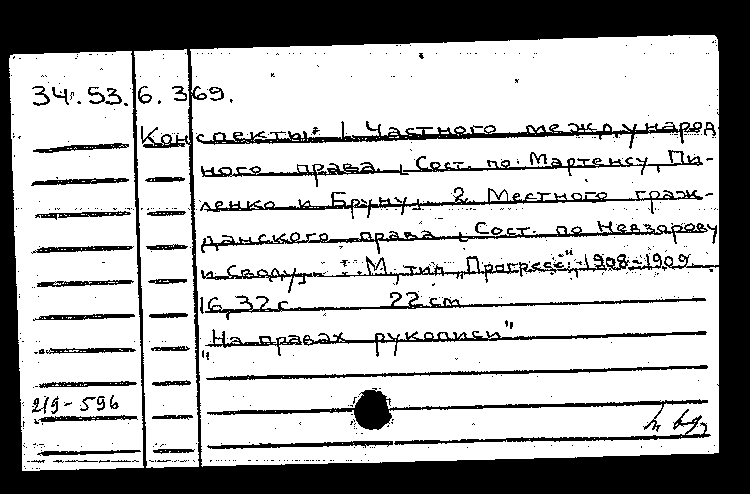 34.53.6.369.
Конспекты: 1. Частного международ-
ного права. [Сост. по Мартенсу, Пи-
ленко и Бруну]. 2. Местного граж-
данского права [Сост. по Невзорову
и Своду]. М, тип „Прогресс", 1908-1909
16, 32 с 22 см
"На правах рукописи"
219-596